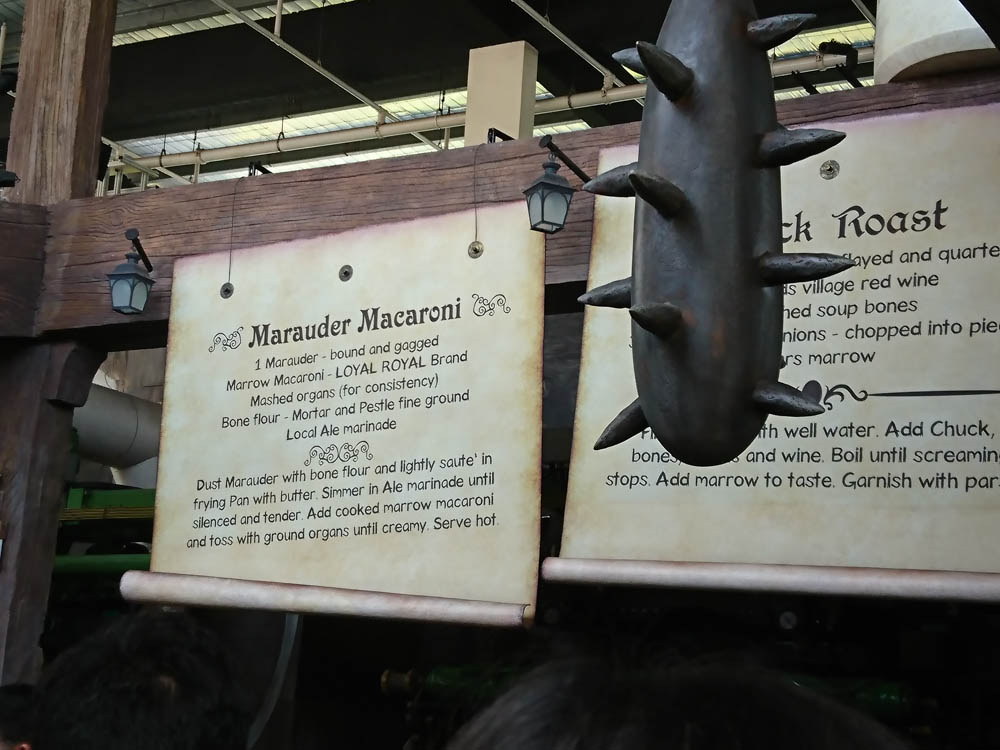 Marauder Macaroni
1 Marauder - bound and gagged
Marrow Macaroni - LOYAL ROYAL Brand
Mashed organs (for consistency)
Bone flour - Mortar and Pestle fine ground
Local Ale marinade
Dust Marauder with bone flour and lightly saute' in
frying Pan with butter. Simmer in Ale marinade until
silenced and tender. Add cooked marrow macaroni
and toss with ground organs until creamy. Serve hot.
ck Roast
flayed and quarte
ds village red wine
hed soup bones
nions - chopped into pie
urs marrow
th well water. Add Chuck,
bones, and wine. Boil until screamin
stops. Add marrow to taste. Garnish with par